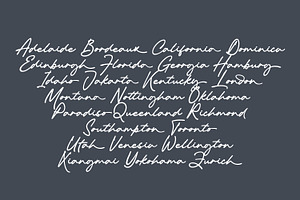 Adelaide Bordeaux California Dominica
Edinburgh Florida Georgia Hamburg
Idaho Jakarta Kentucky London
Montana Nottingham Oklahoma
Paradiso Queenland Richmond
Southampton Toronto
Utah Venesia Wellington
Xiangmai Yokohama Zurich